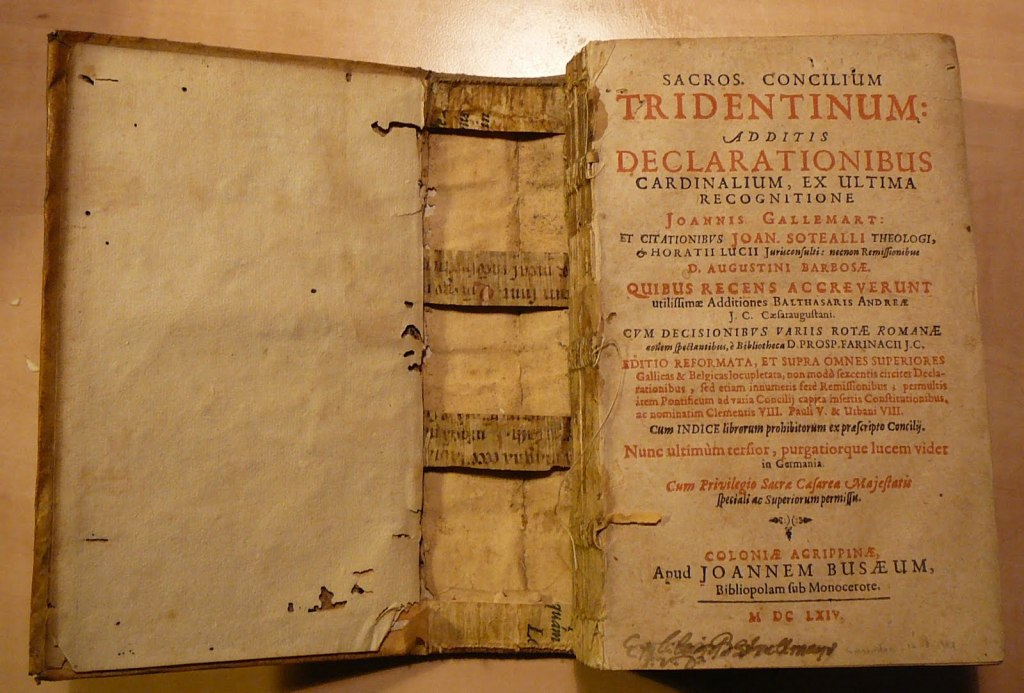 SACROS. CONCILIUM
TRIDENTINUM:
ADDITIS
DECLARATIONIBUS
CARDINALIUM, EX ULTIMA
RECOGNITIONE
JOANNIS GALLEMART:
ET CITATIONIBVS JOAN. SOTEALLI THEOLOGI,
& HORATII LUCII Jurisconsulti: necnon Remissionibus
D. AUGUSTINI BARBOSÆ.
QUIBUS RECENS ACCREVERUNT
utilissimæ Additiones BALTHASARIS ANDREÆ
J. C. Cæsaraugustani.
CVM DECISIONIBVS VARIIS ROTÆ ROMANÆ
eodem spectantibus, è Bibliotheca D. PROSP. FARINACII J.C.
EDITIO REFORMATA, ET SUPRA OMNES SUPERIORES
Gallicas & Belgicas locupletata, non modò sexcentis circiter Decla-
rationibus, sed etiam innumeris ferè Remissionibus, permultis
item Pontificum ad varia Concilij capita insertis Constitutionibus,
ac nominatim Clementis VIII. Pauli V. & Urbani VIII.
Cum INDICE librorum prohibitorum ex præscripto Concilij.
Nunc ultimùm tersior, purgatiorque lucem videt
in Germania.
Cum Privilegio Sacræ Cæsareæ Majestatis
speciali ac Superiorum permissu.
COLONIÆ AGRIPPINÆ,
Apud JOANNEM BUSÆUM,
Bibliopolam sub Monocerote.
M DC LXIV.
quàm